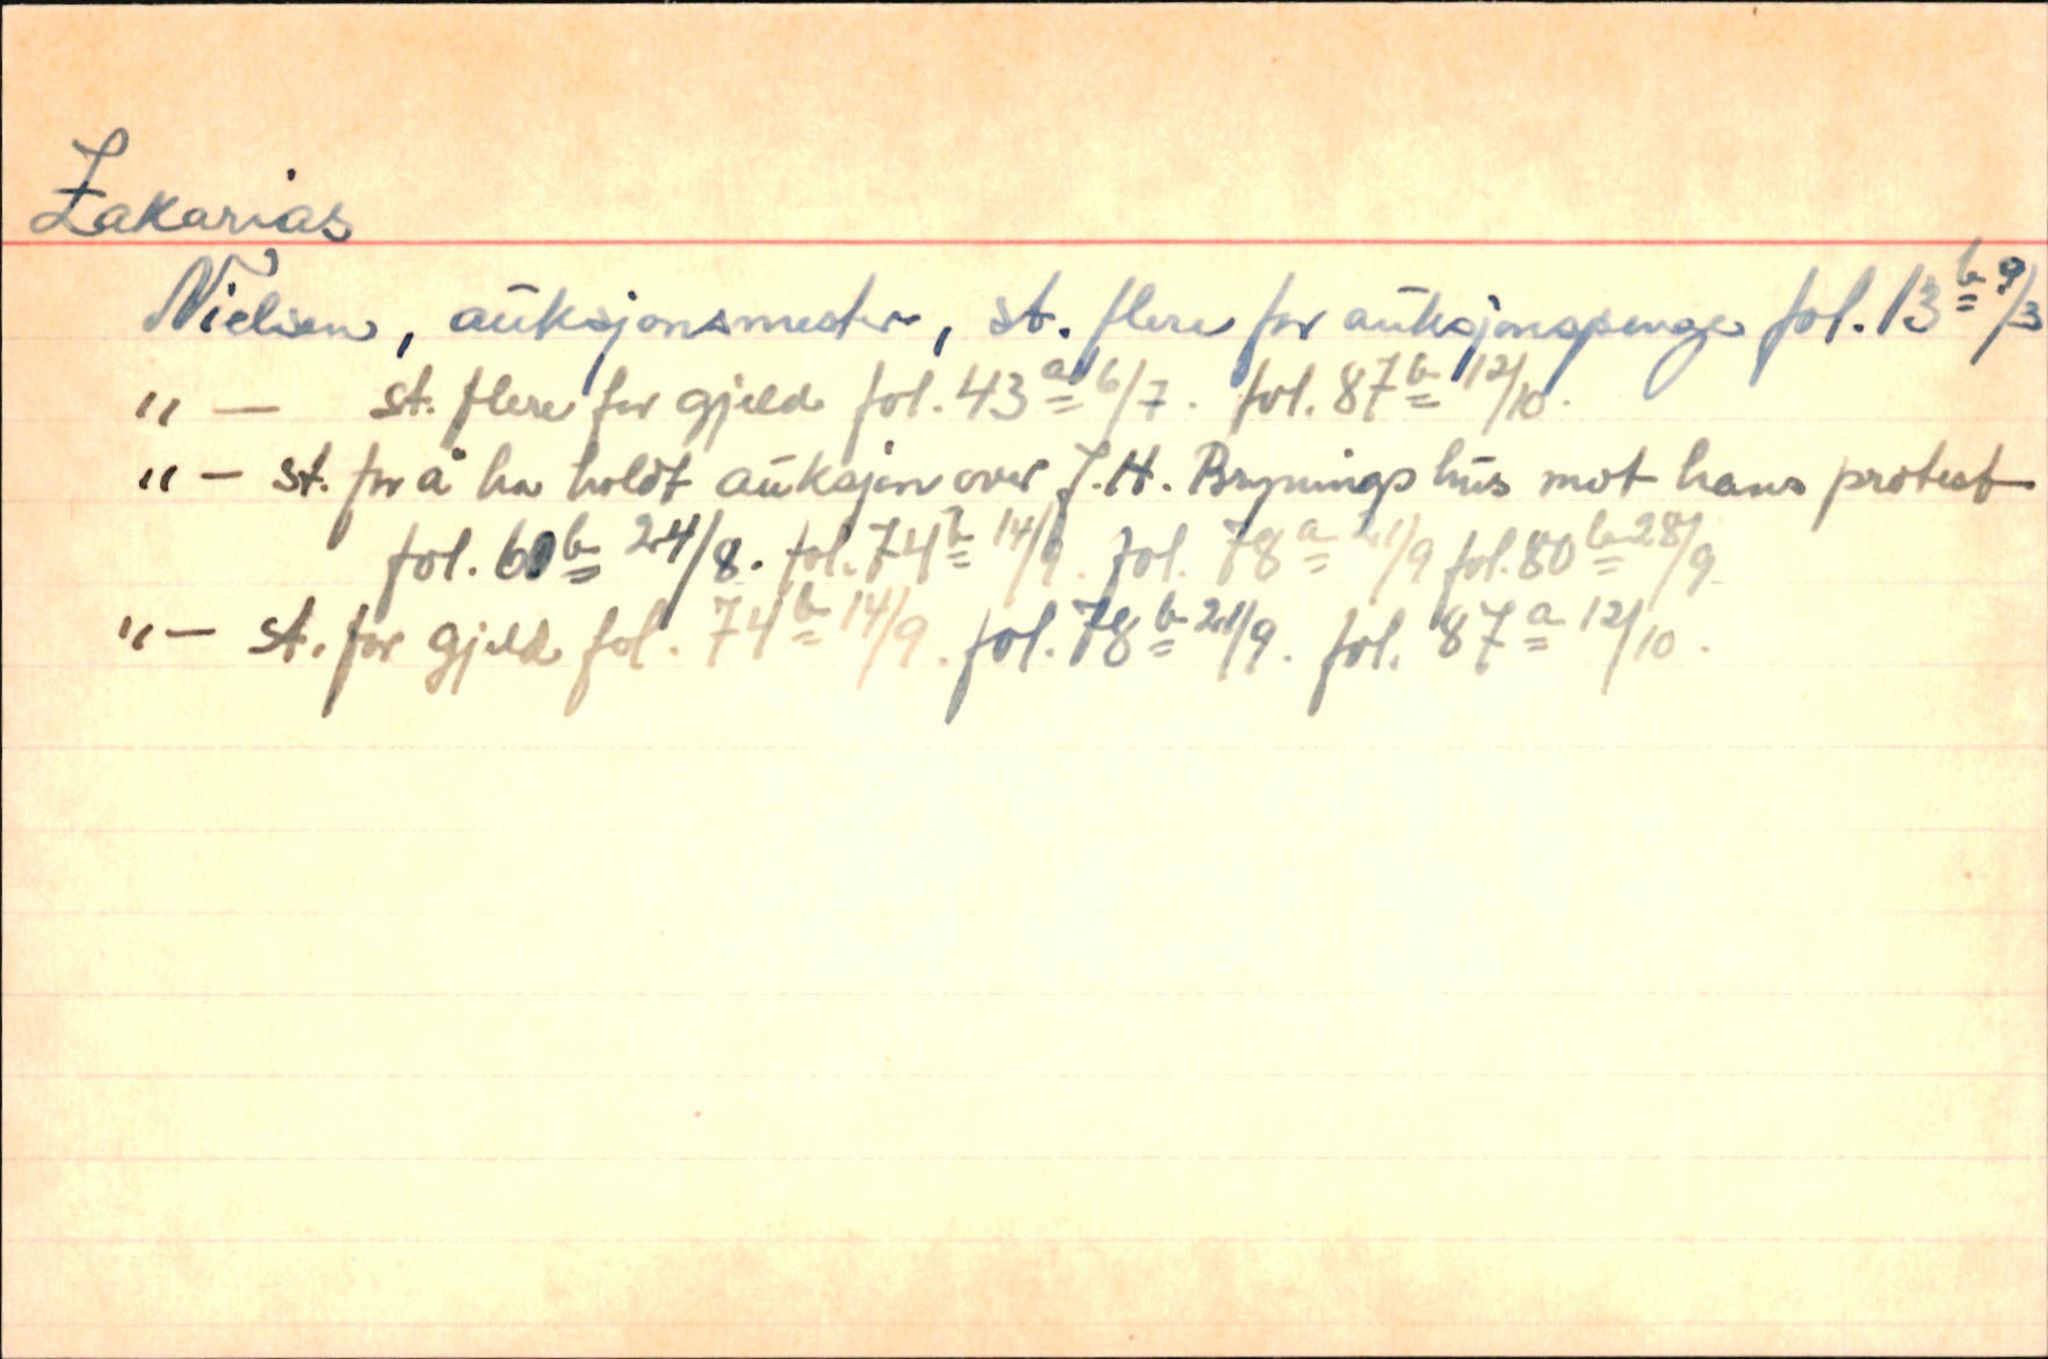 Zakarias
Nielsen, auksjonsmester, st. flere for auksjonspenge fol. 13b 9/3
" — st. flere for gjeld fol. 43a 6/7. fol. 87b 12/10.
" — st. for å ha holdt auksjon over J.H. Brynings hus mot hans protest
fol. 60b 24/8. fol. 74b 14/9. fol. 78a 21/9 fol. 80b 28/9
" — st. for gjeld fol. 74b 14/9. fol. 78b 21/9. fol. 87a 12/10.